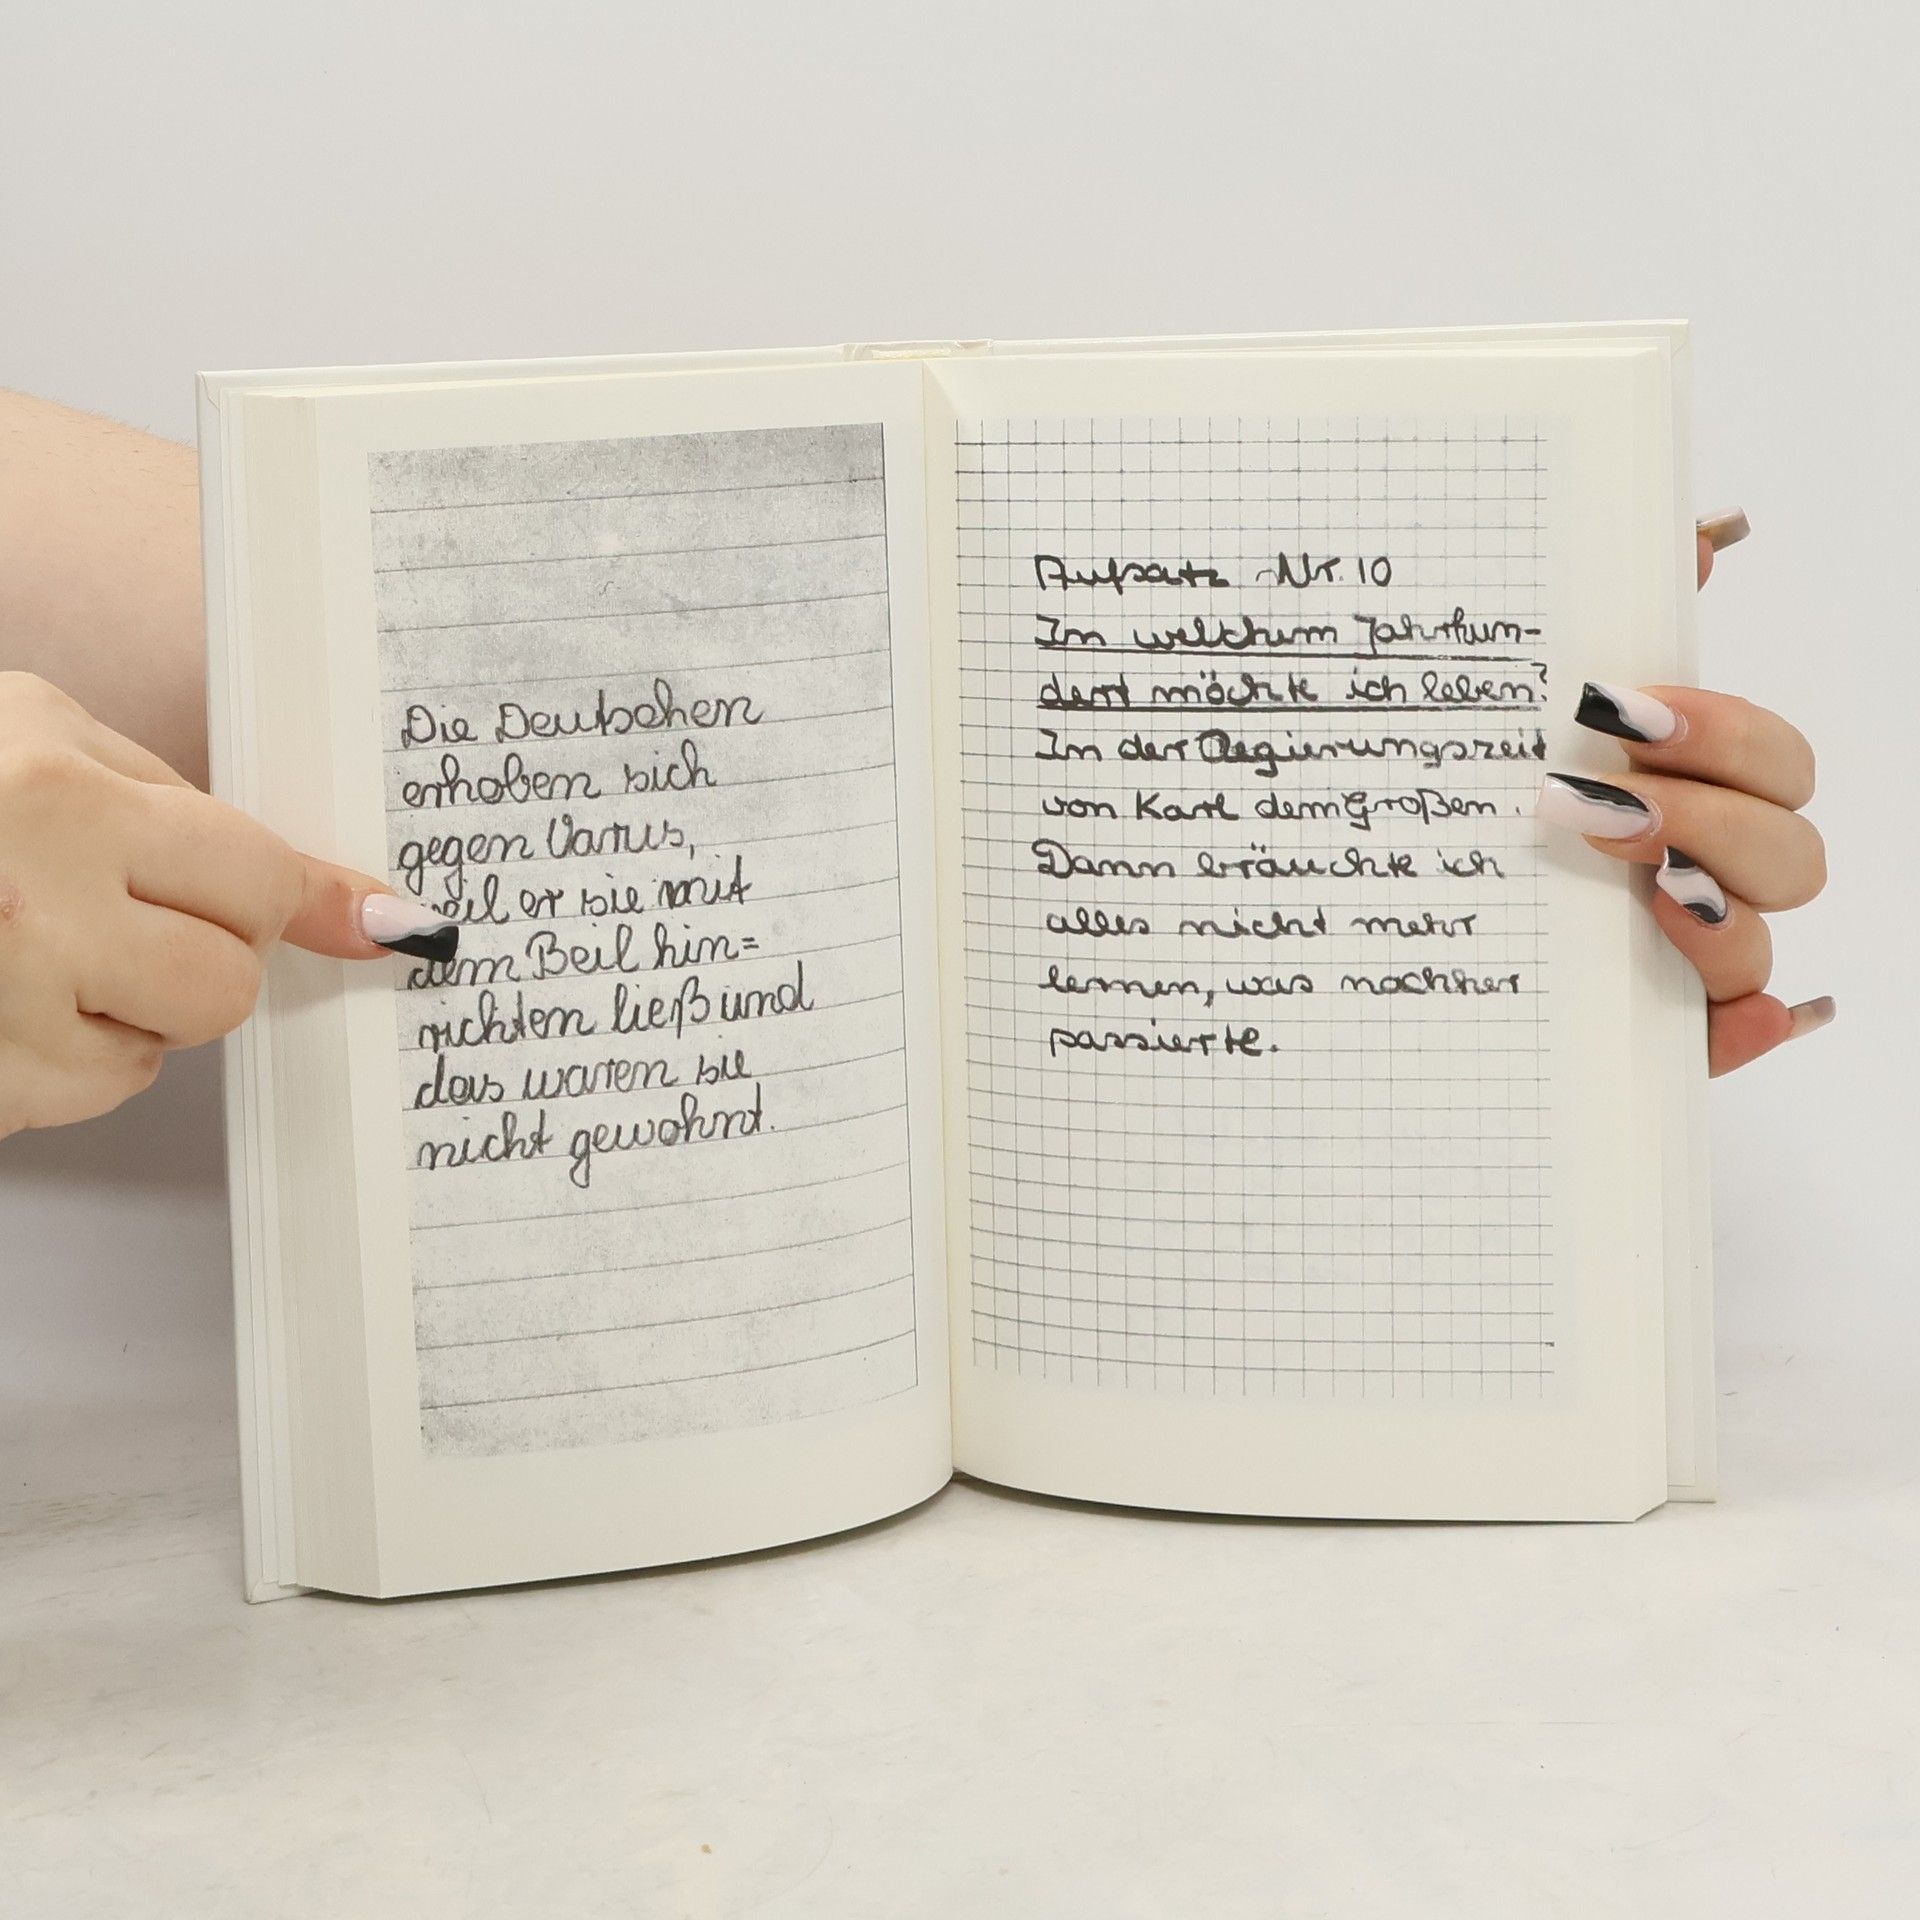 Die Deutschen
erhoben sich
gegen Varus,
weil er sie mit
dem Beil hin=
richten ließ und
das waren sie
nicht gewohnt.
Aufsatz Nr. 10
In welchem Jahrhun-
dert möchte ich leben?
In der Regierungszeit
von Karl dem Großen.
Dann bräuchte ich
alles nicht mehr
lernen, was nachher
passierte.